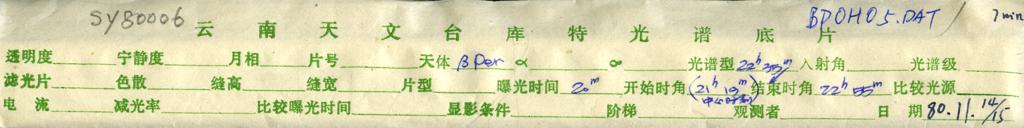 SY80006 云南天文台库特光谱底片 BP0H05.DAT / 7min
透明度 宁静度 月相 片号 天体 β Per α ∞ 光谱型 22ʰ 35ᵐ 入射角 光谱级
滤光片 色散 缝高 缝宽 片型 曝光时间 20ᵐ 开始时角 (21ʰ 19ᵐ) 结束时角 22ʰ 55ᵐ 比较光源
电流 减光率 比较曝光时间 显影条件 阶梯 中心时刻 观测者 日期 80.11.14/15